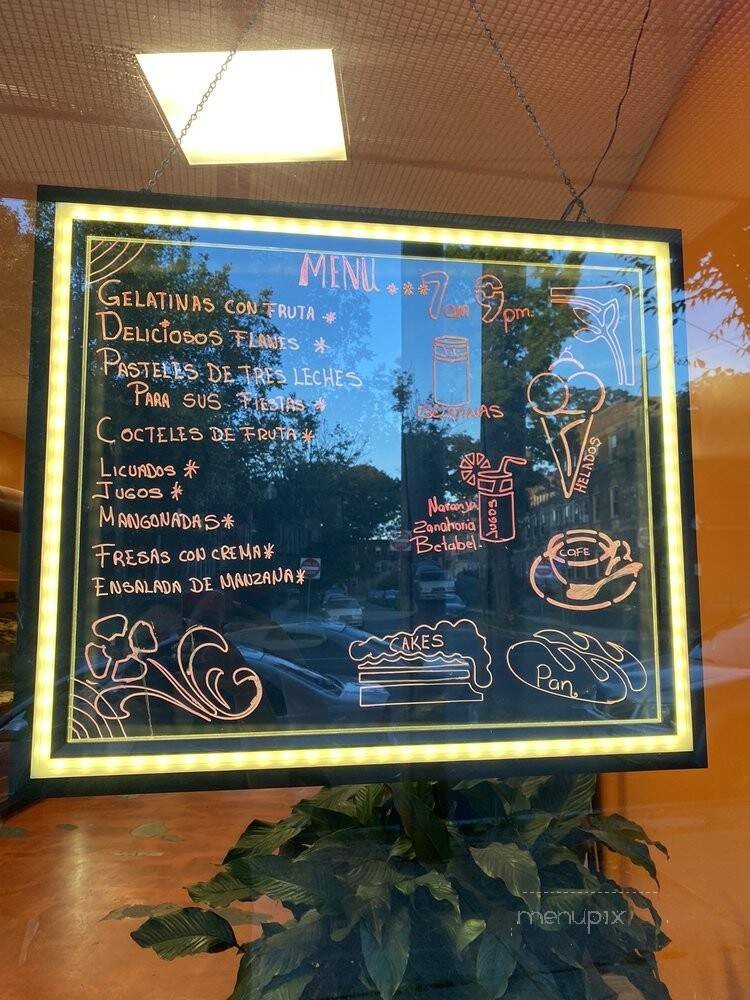 MENU...
7am 9pm.
GELATINAS CON FRUTA *
DELICIOSOS FLANES *
PASTELES DE TRES LECHES
PARA SUS FIESTAS *
COCTELES DE FRUTA *
LICUADOS *
JUGOS *
MANGONADAS *
FRESAS CON CREMA *
ENSALADA DE MANZANA *
HELADOS
Naranja
Zanahoria
Betabel.
JUGOS
CAFE
CAKES
Pan.
menupix